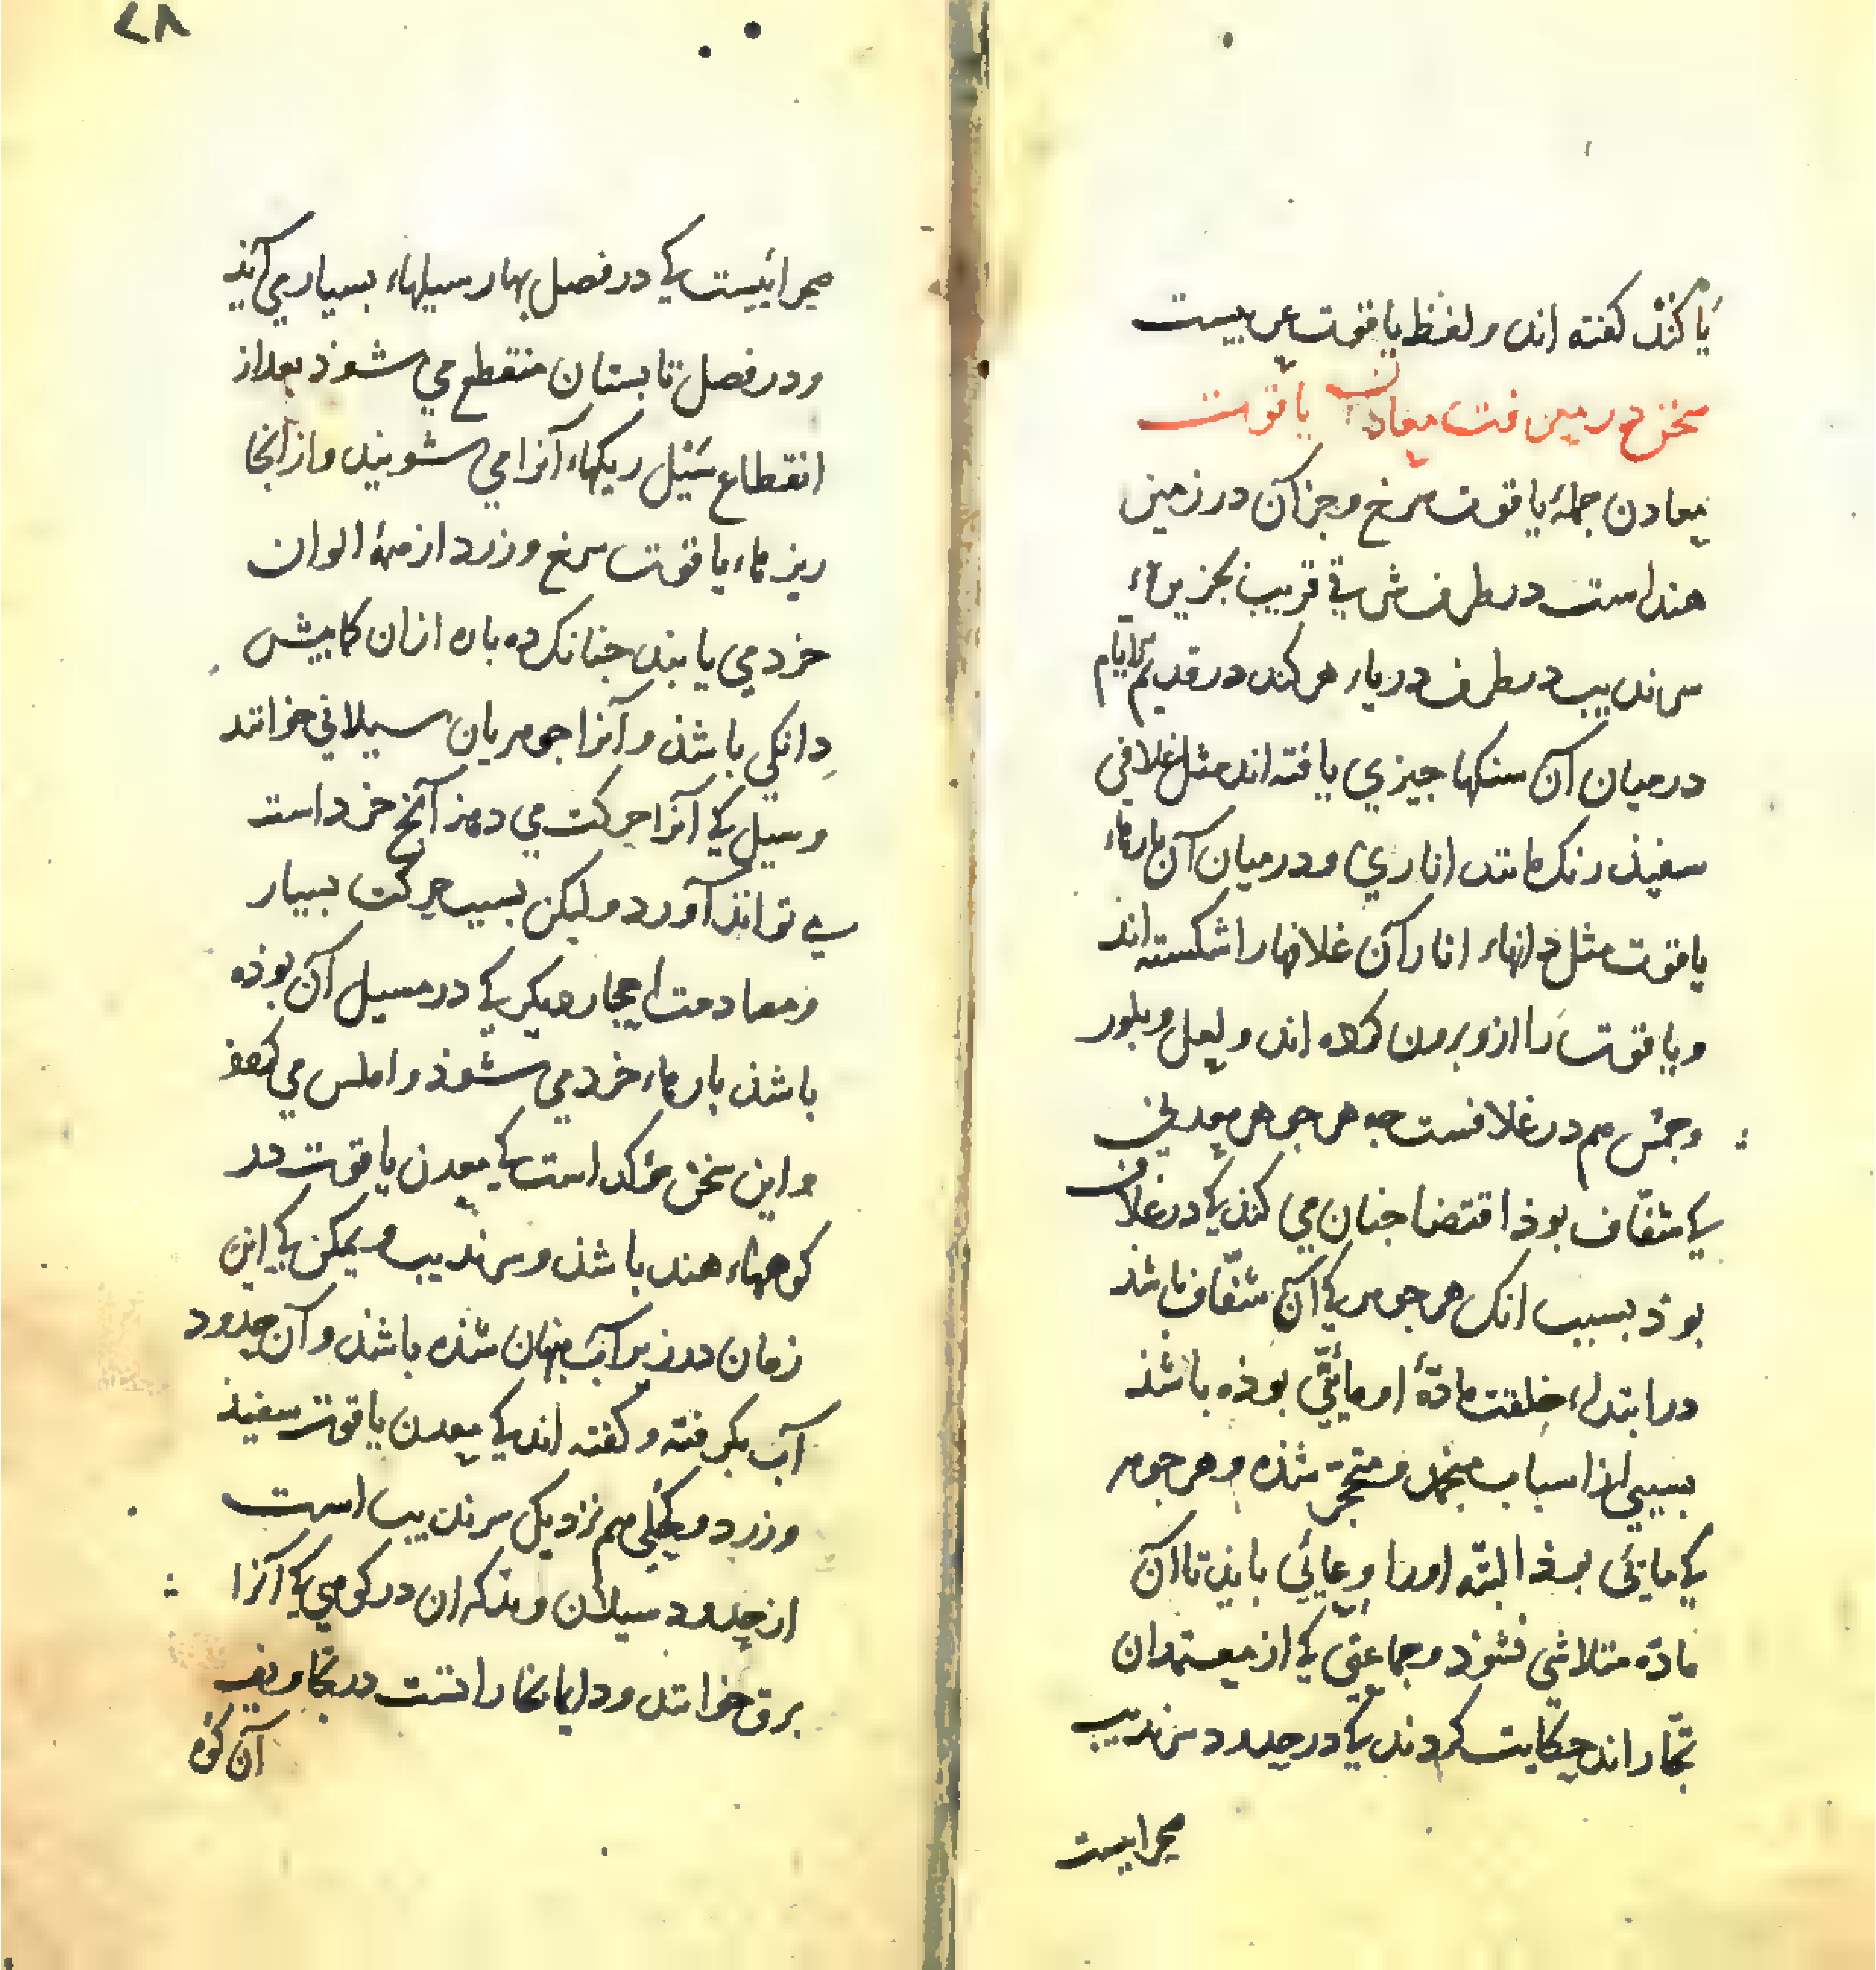 یاکند گفته اند و لفظ یاقوت عربیست
سخن در معرفت معادن یاقوت
معادن جملهٔ یاقوت سرخ و جز آن در زمین
هند است در طرف شرقی قریب بجزیرهٔ
سرندیب در طرف دریاء هرکند در قدیم الایام
در میان آن سنکها جیزی یافته اند مثل غلافی
سفیذ رنک مانند اناری و در میان آن بارهاء
یاقوت مثل دانهاء انار آن غلافها را شکسته اند
و یاقوت را ازو برون کرده اند و لعل و بلور
و جمش هم در غلافست جه هر جوهر معدنی
کی شفّاف بوذ اقتضا جنان می کند کی در غلاف
بوذ بسبب انک هر جوهر کی آن شفّاف باشذ
در ابتداء خلقت مادّهٔ او مائیّ بوذه باشذ
بسببی از اسباب منجمد و متحجر شذه و هر جوهر
کی مائی بوذ البتّه او را وعائی بایذ تا آن
مادّه متلاشی نشوذ و جماعتی کی از معتمدان
تجّار اند حکایت کردند کی در حدود سرندیب
صحراییست
۲۸
صحرائیست کی در فصل بهار سیلهاء بسیار می آیذ
و در فصل تابستان منقطع می شوذ بعد از
انقطاع سَیْل ریکهاء آنرا می شویند و از آنجا
ریزهاء یاقوت سرخ و زرد از همهٔ الوان
خرد می یابند جنانک ده باره ازان کمابیش
دانکی باشذ و آنرا جوهریان سیلانی خوانند
و سیل کی آنرا حرکت می دهذ آنج خرد است
می تواند آورد و لیکن بسبب حرکت بسیار
و مصادمت احجار دیکر کی در مسیل آن بوذه
باشذ بارهاء خرد می شوذ و املس می
و این سخن مؤکد است کی معدن یاقوت در
کوههاء هند باشذ و سرندیب و یمکن کی این
زمان در زیر آب بنهان شذه باشذ و آن حدود
آب بکرفته و کفته اند کی معدن یاقوت سفیذ
و زرد و کحلی هم نزدیک سرندیب است
از حدود سیلان و مذکران در کوهی کی آنرا
برق خوانند و دایما بخارا تست در تجاویف
آن کوه